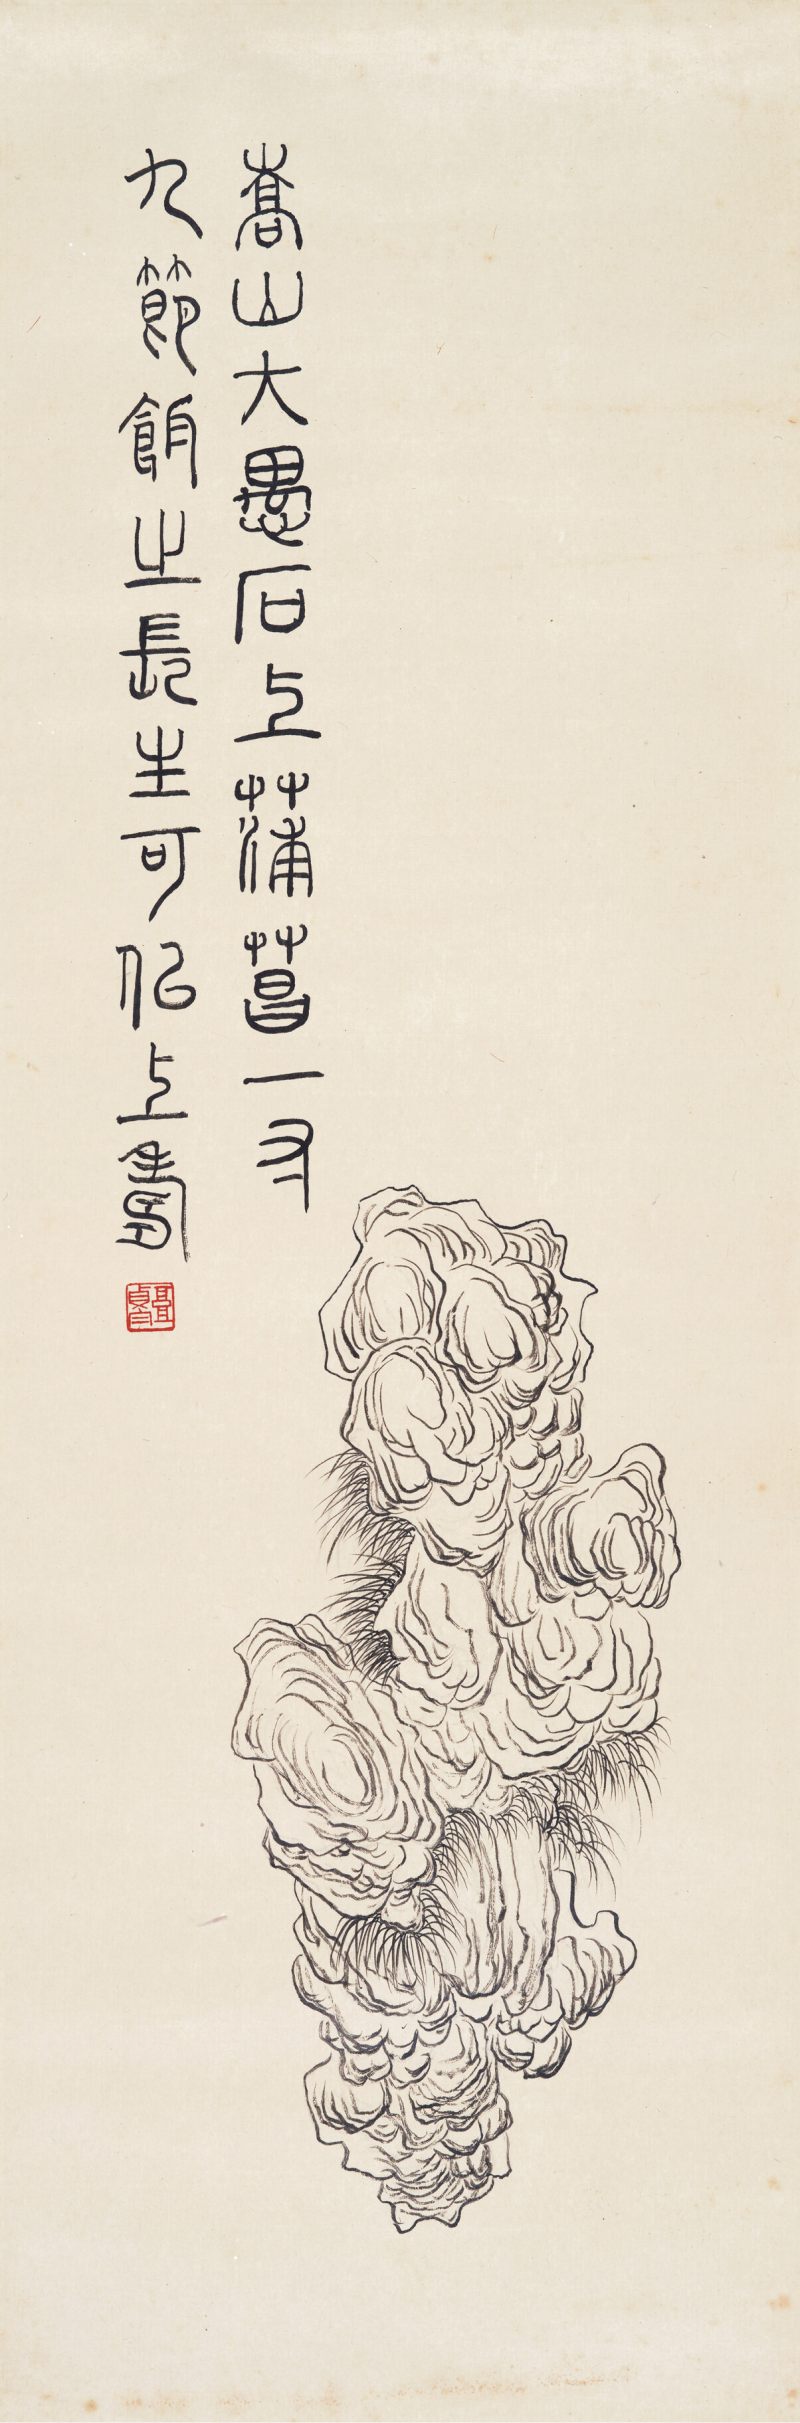 嵩山大愚石上蒲菖一寸
九節餌之長生可以上壽